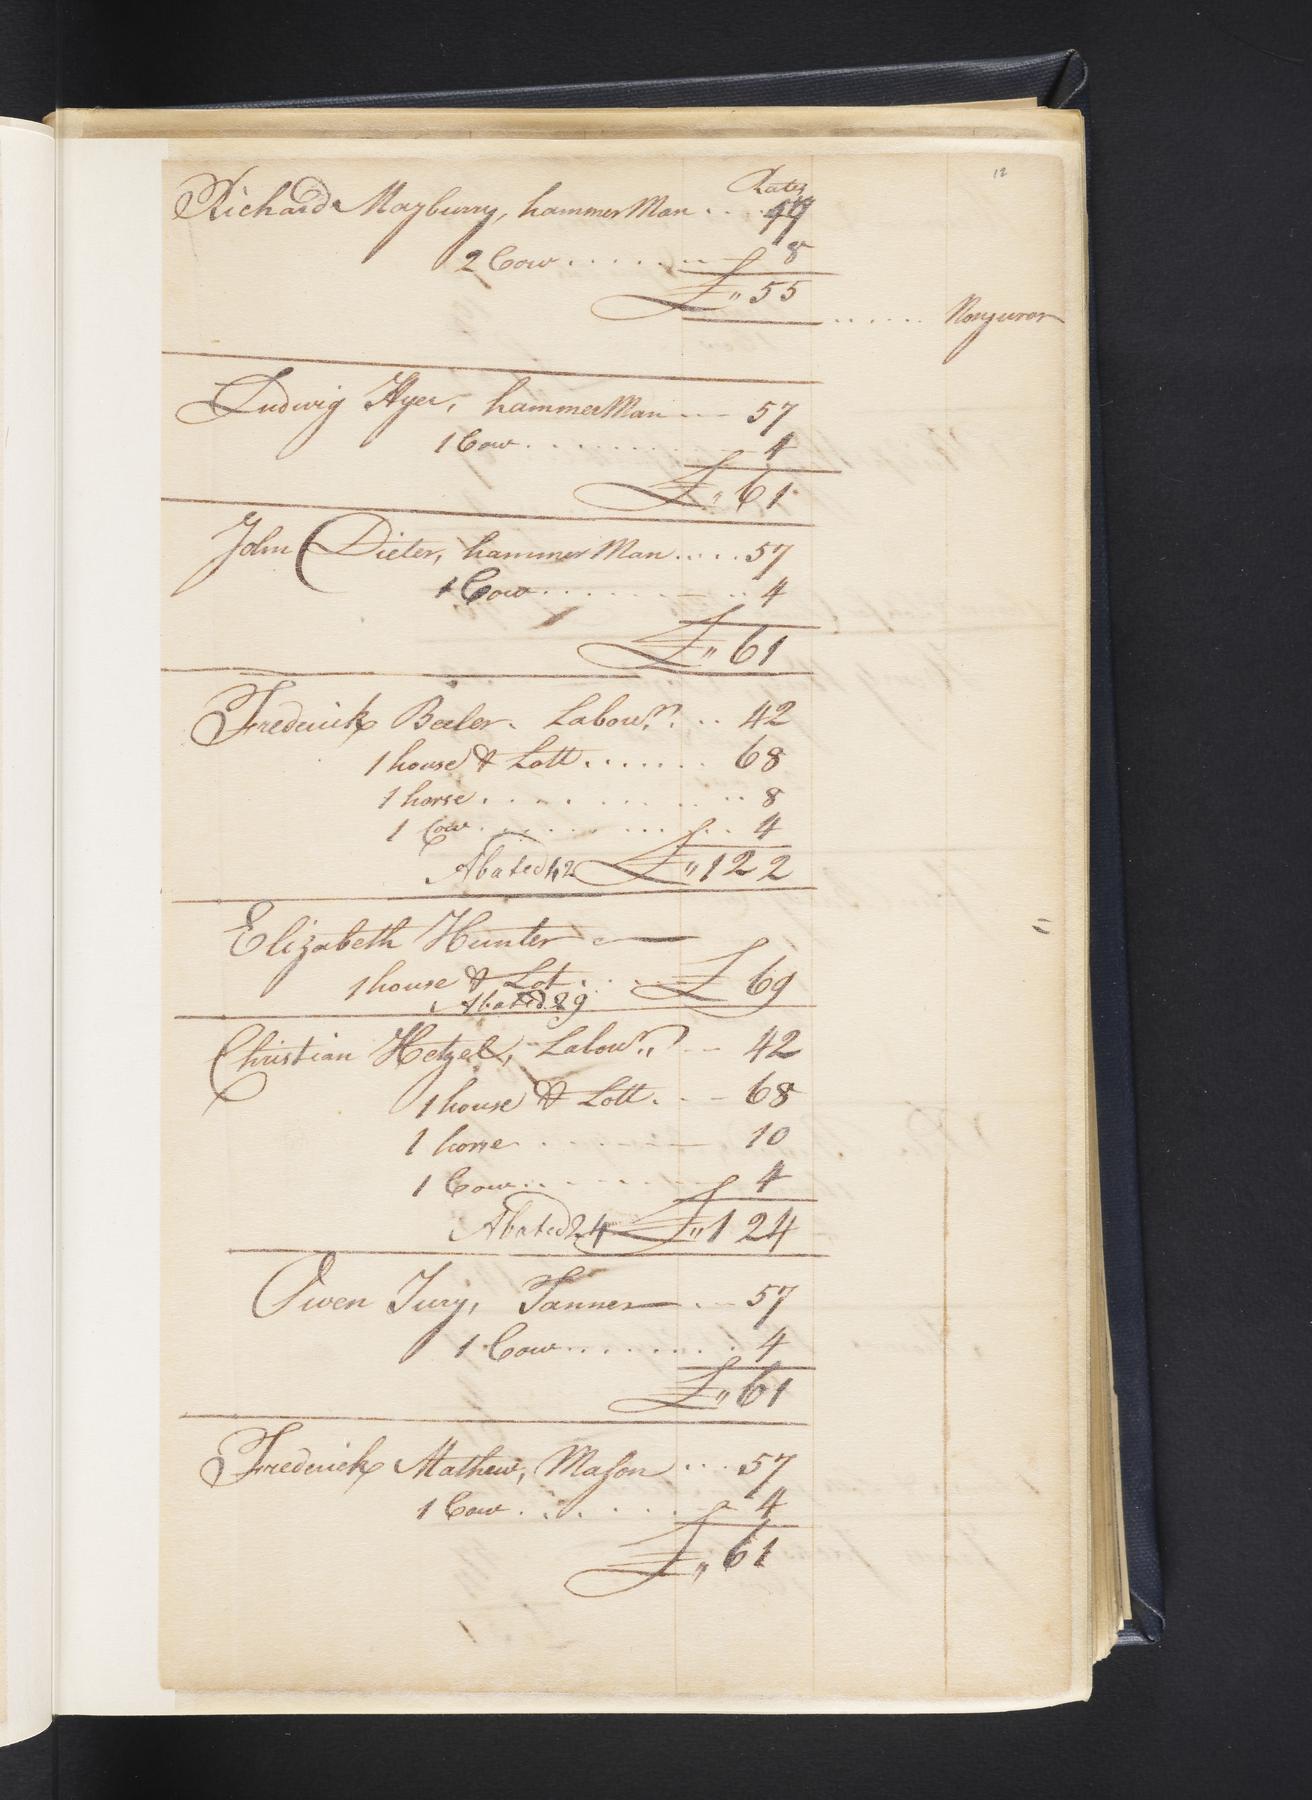 12
Rates
Richard Mayburry, hammer Man . . . 47
2 Cow . . . . . . . . 8
£ „ 55
. . . . . . Nonjuror
Ludwig Hyer, hammer Man . . . 57
1 Cow . . . . . . . . 4
£ „ 61
John Dieter, hammer Man . . . . . 57
1 Cow . . . . . . . . 4
£ „ 61
Frederick Beeler. Labour. . . 42
1 house & Lott . . . . . . . 68
1 horse . . . . . . . . . . 8
1 Cow . . . . . . . . . . 4
Abated 42 £ „ 122
Elizabeth Hunter
1 house & Lot . . . £ 69
Abated 29
Christian Hetzel, Labour. . . 42
1 house & Lott . . . 68
1 horse . . . . . . 10
1 Cow . . . . . . . . 4
Abated 24 £ „ 124
Owen Jury, Tanner . . . 57
1 Cow . . . . . . . . 4
£ „ 61
Frederick Mathew, Mason . . . . 57
1 Cow . . . . . . . 4
£ „ 61